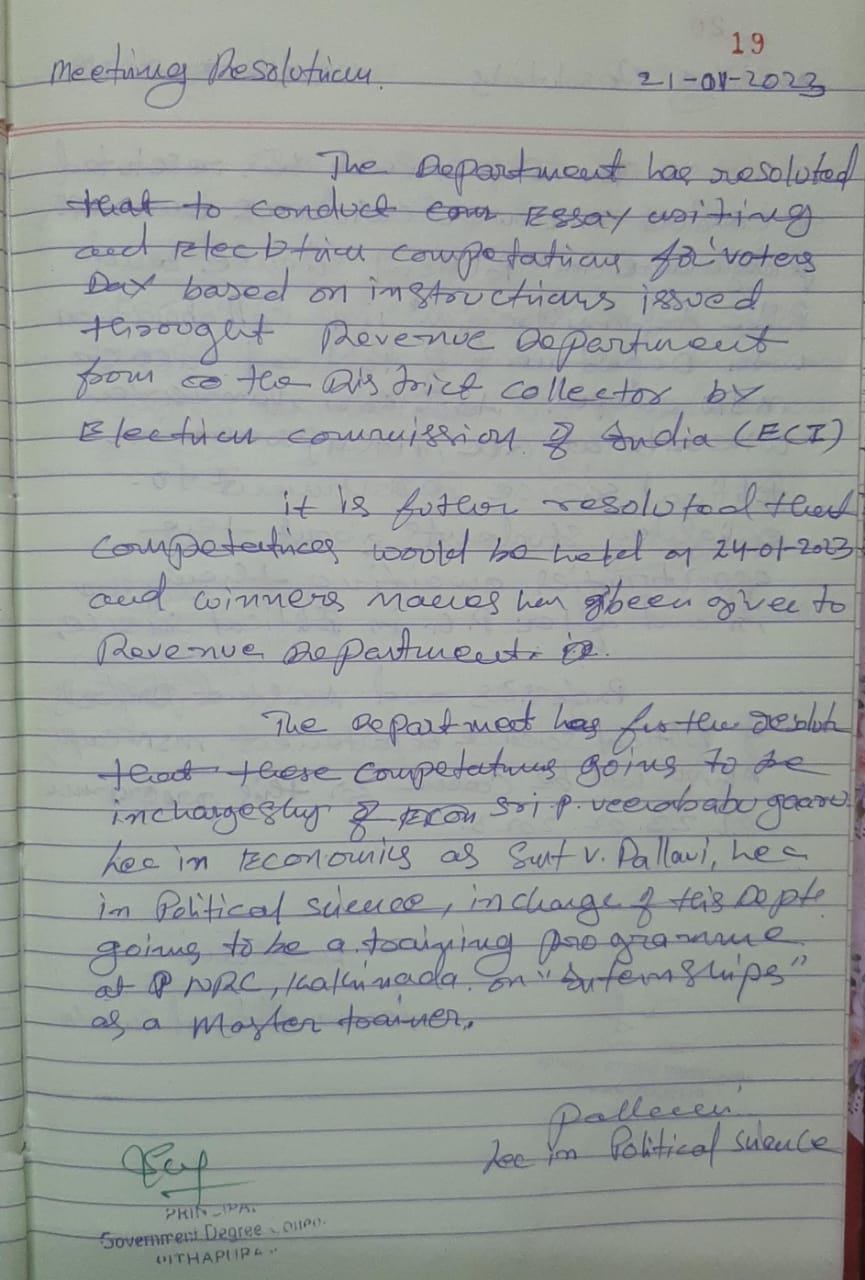 19
Meeting Resolution.
21-01-2023
The Department has resoluted
that to conduct Essay writing
and Election competations for voters
Day based on instructions issued
throught Revenue Department
from the District collector by
Election commission of India (ECI)
it is futher resoluted that
competatices would be held on 24-01-2023
and winners names has been given to
Revenue Department.
The Department has further resolut
that these competatus going to be
inchargeship of Econ Sri P. veerababu gaaru
Lec in Economics as Smt V. Pallavi, Lec
in Political science, incharge of this Dept.
going to be a training programme
at P NRC, Kakinada. on "Internships"
as a Master trainer.
Pallavi
Lec in Political Science
PRINCIPAL
Government Degree
PITHAPURA